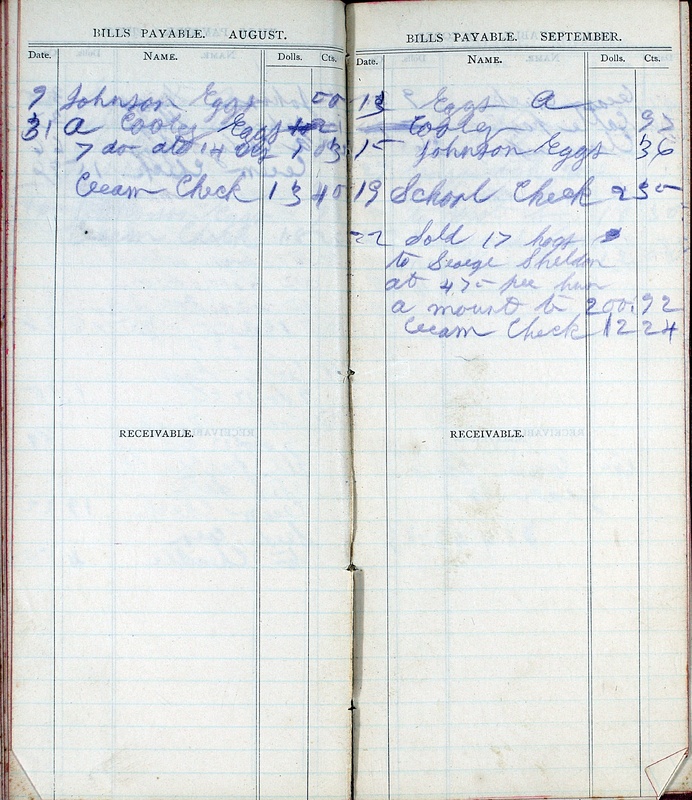 BILLS PAYABLE. AUGUST.
Date. NAME. Dolls. Cts.
9 Johnson Eggs 50
31 A Cooley Eggs
7 do at 14 1 03
Cream Check 13 40
RECEIVABLE.
BILLS PAYABLE. SEPTEMBER.
Date. NAME. Dolls. Cts.
13 Eggs A
Cooley 95
15 Johnson Eggs 36
19 School Check 2 35
22 Sold 17 hogs
to George Sheldon
at 475 per hun
a mount to 200.92
Cream Check 12 24
RECEIVABLE.